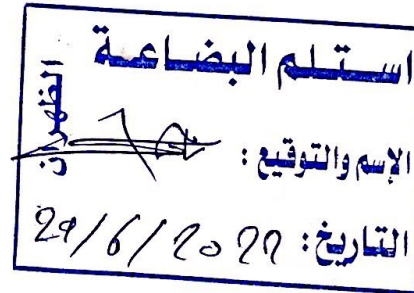 استلم البضاعة
الظهران
الإسم والتوقيع :
التاريخ: 29/6/2022